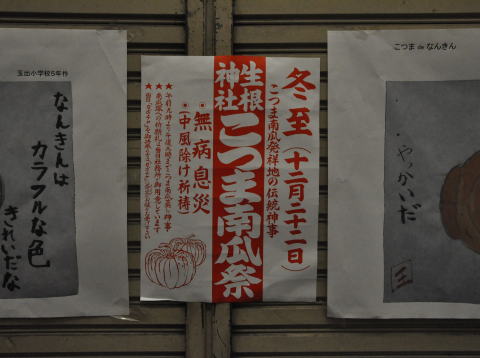 玉出小学校5年作
なんきんは
カラフルな色
きれいだな
冬至(十二月二十二日)
こつま南瓜発祥地の伝統神事
生根神社
こつま南瓜祭
●無病息災
●(中風除け祈祷)
こつま de なんきん
やっかいだ